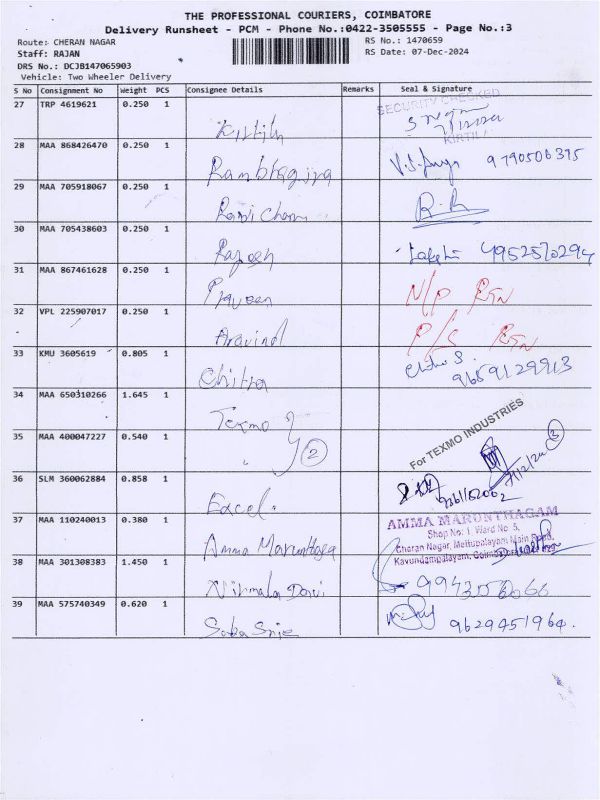 THE PROFESSIONAL COURIERS, COIMBATORE
Delivery Runsheet - PCM - Phone No.:0422-3505555 - Page No.:3
Route: CHERAN NAGAR RS No.: 1470659
Staff: RAJAN RS Date: 07-Dec-2024
DRS No.: DCJB147065903
Vehicle: Two Wheeler Delivery
S No Consignment No Weight PCS Consignee Details Remarks Seal & Signature
27 TRP 4619621 0.250 1 SECURITY CHECKED
KIRTILA
28 MAA 868426470 0.250 1
Rambhagiya 9790506395
29 MAA 705918067 0.250 1
Ravi Charan R.R
30 MAA 705438603 0.250 1
Rajeesh
31 MAA 867461628 0.250 1
Praveen N/P RTN
32 VPL 225907017 0.250 1
Aravind P/S RTN
33 KMU 3605619 0.805 1
Chitra 9659129913
34 MAA 650310266 1.645 1
Texmo
35 MAA 400047227 0.540 1 For TEXMO INDUSTRIES
2 3
36 SLM 360062884 0.858 1
Excel.
37 MAA 110240013 0.380 1 AMMA MARUNTHAGAM
Shop No: 1 Ward No 5,
Cheran Nagar, Mettupalayam Main Road,
Amma Marunthaga Kavundampalayam, Coimbatore
38 MAA 301308383 1.450 1
Nirmala Devi 9943156066
39 MAA 575740349 0.620 1
9629451964.